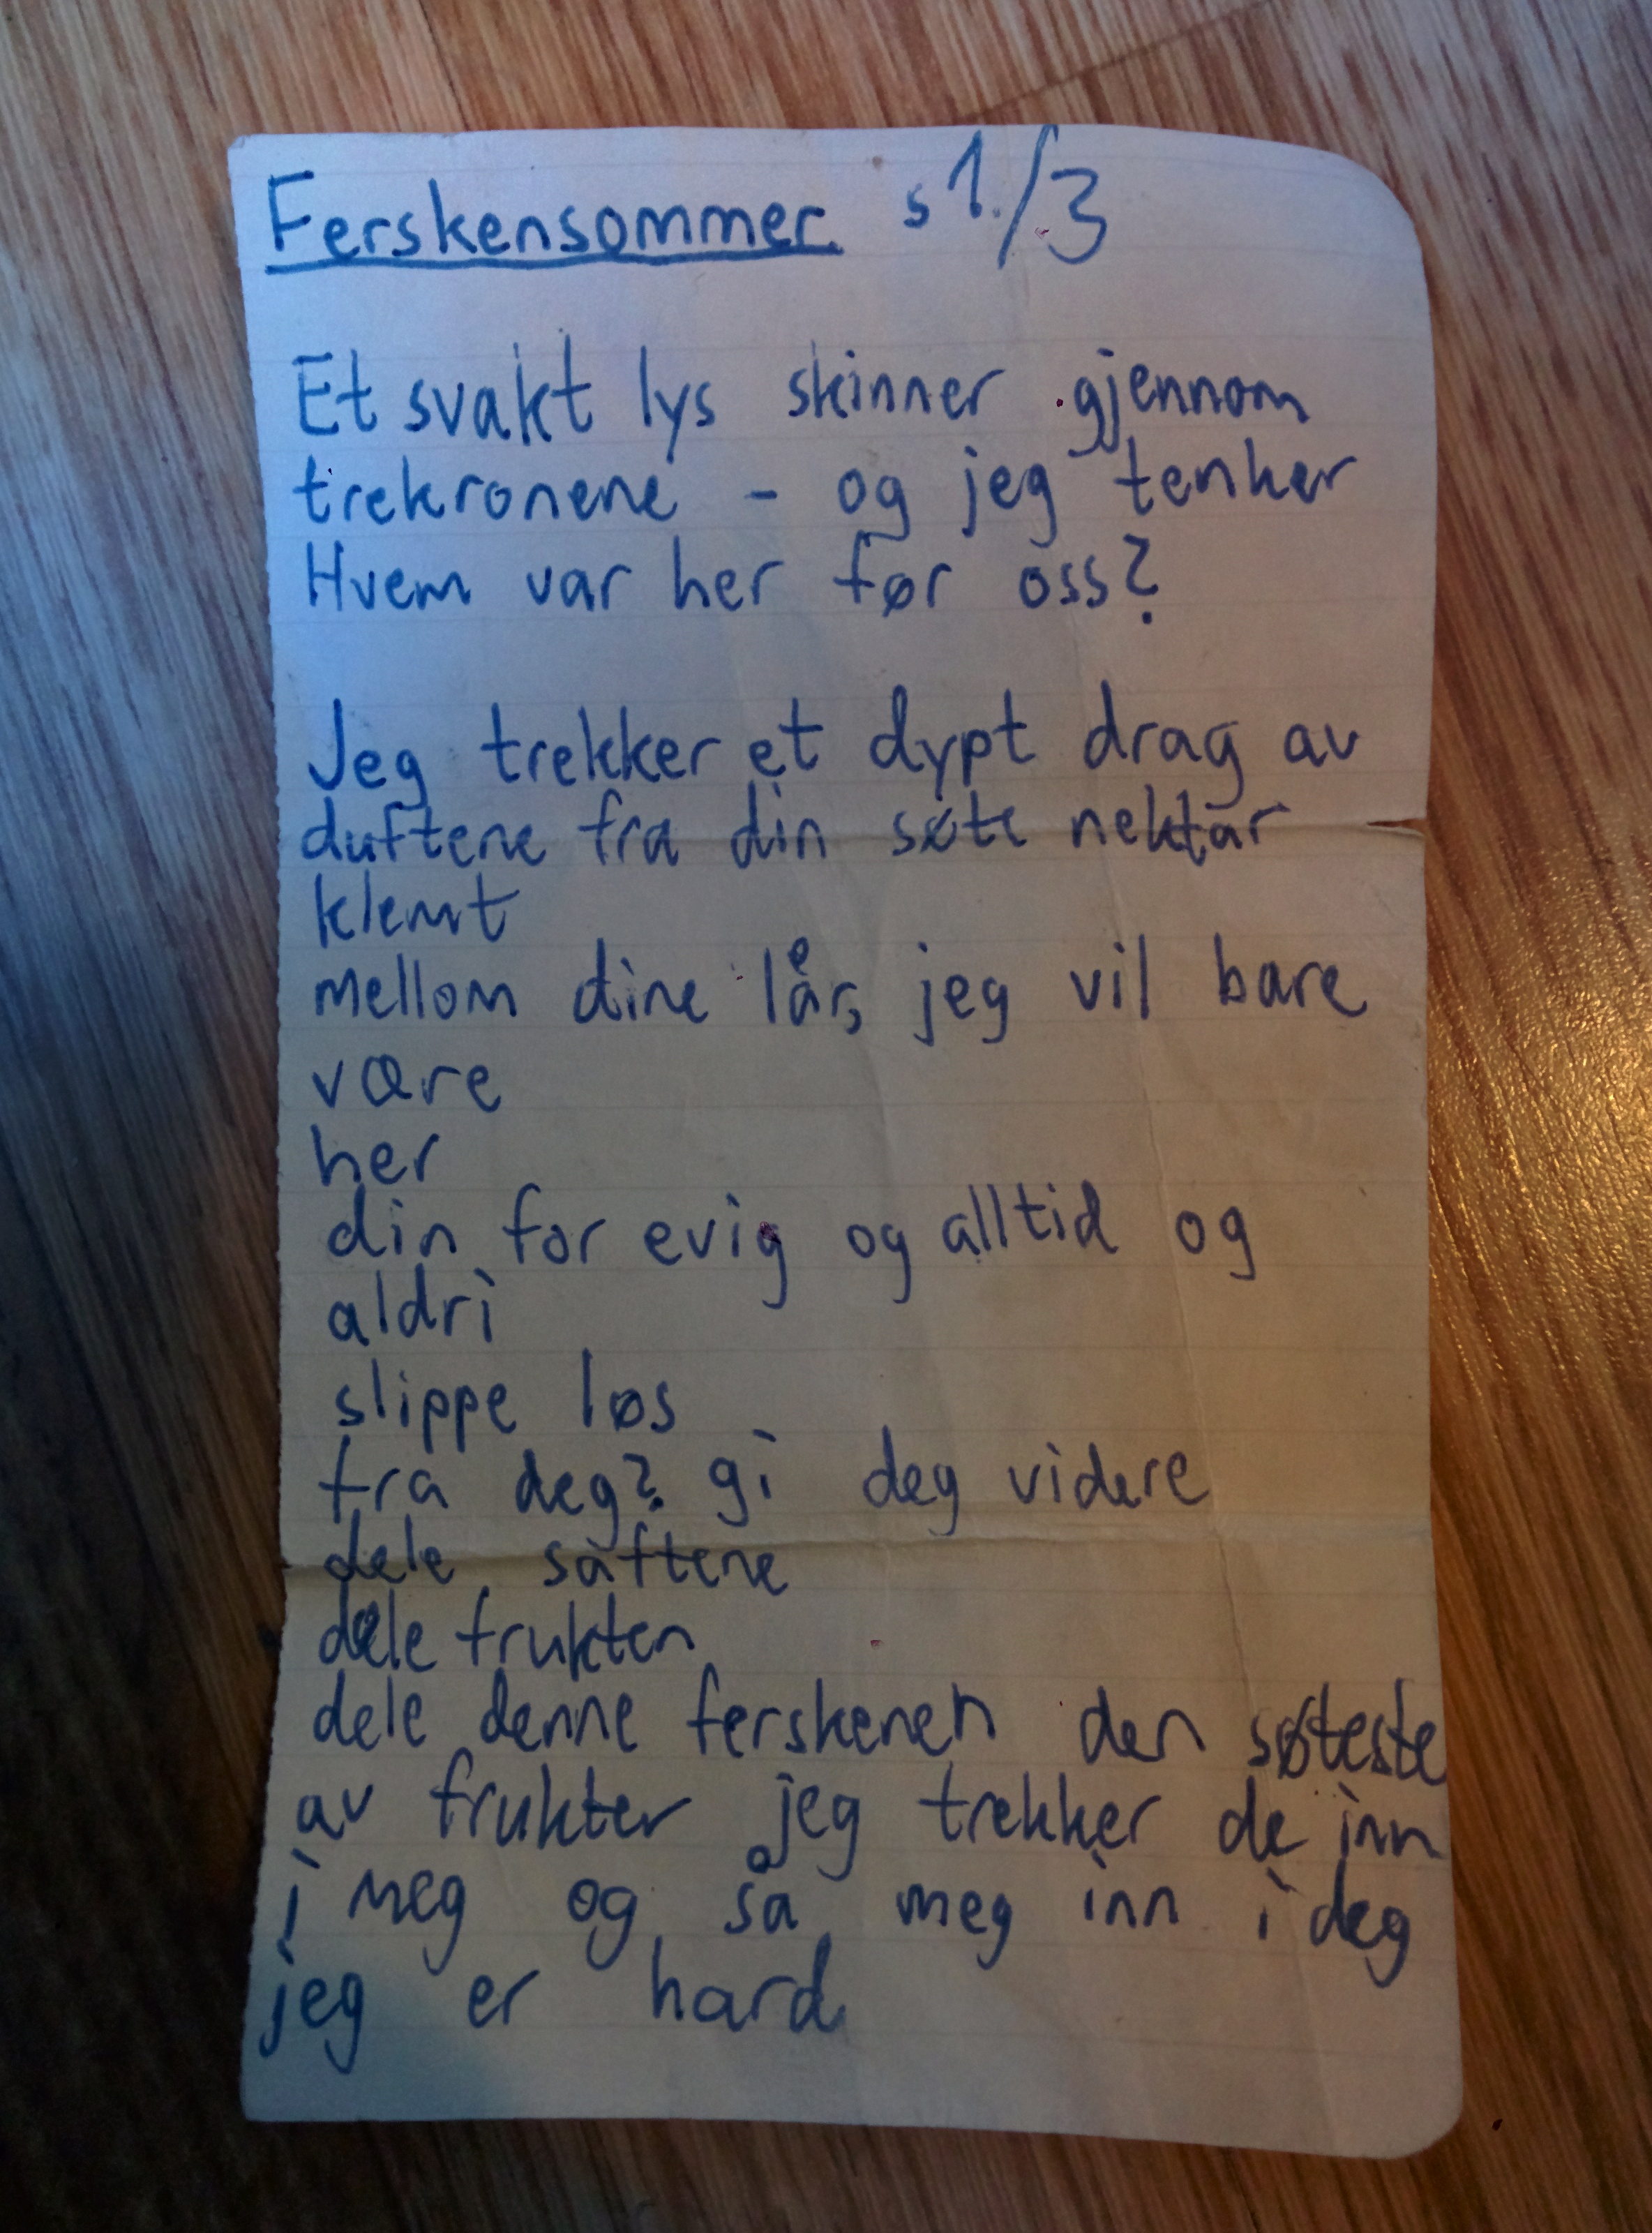 Ferskensommer s 1./3
Et svakt lys skinner gjennom
trekronene - og jeg tenker
Hvem var her før oss?
Jeg trekker et dypt drag av
duftene fra din søte nektar
klemt
mellom dine lår, jeg vil bare
være
her
din for evig og alltid og
aldri
slippe løs
fra deg? gi deg videre
dele saftene
dele frukten
dele denne ferskenen den søteste
av frukter jeg trekker de inn
i meg og så meg inn i deg
jeg er hard